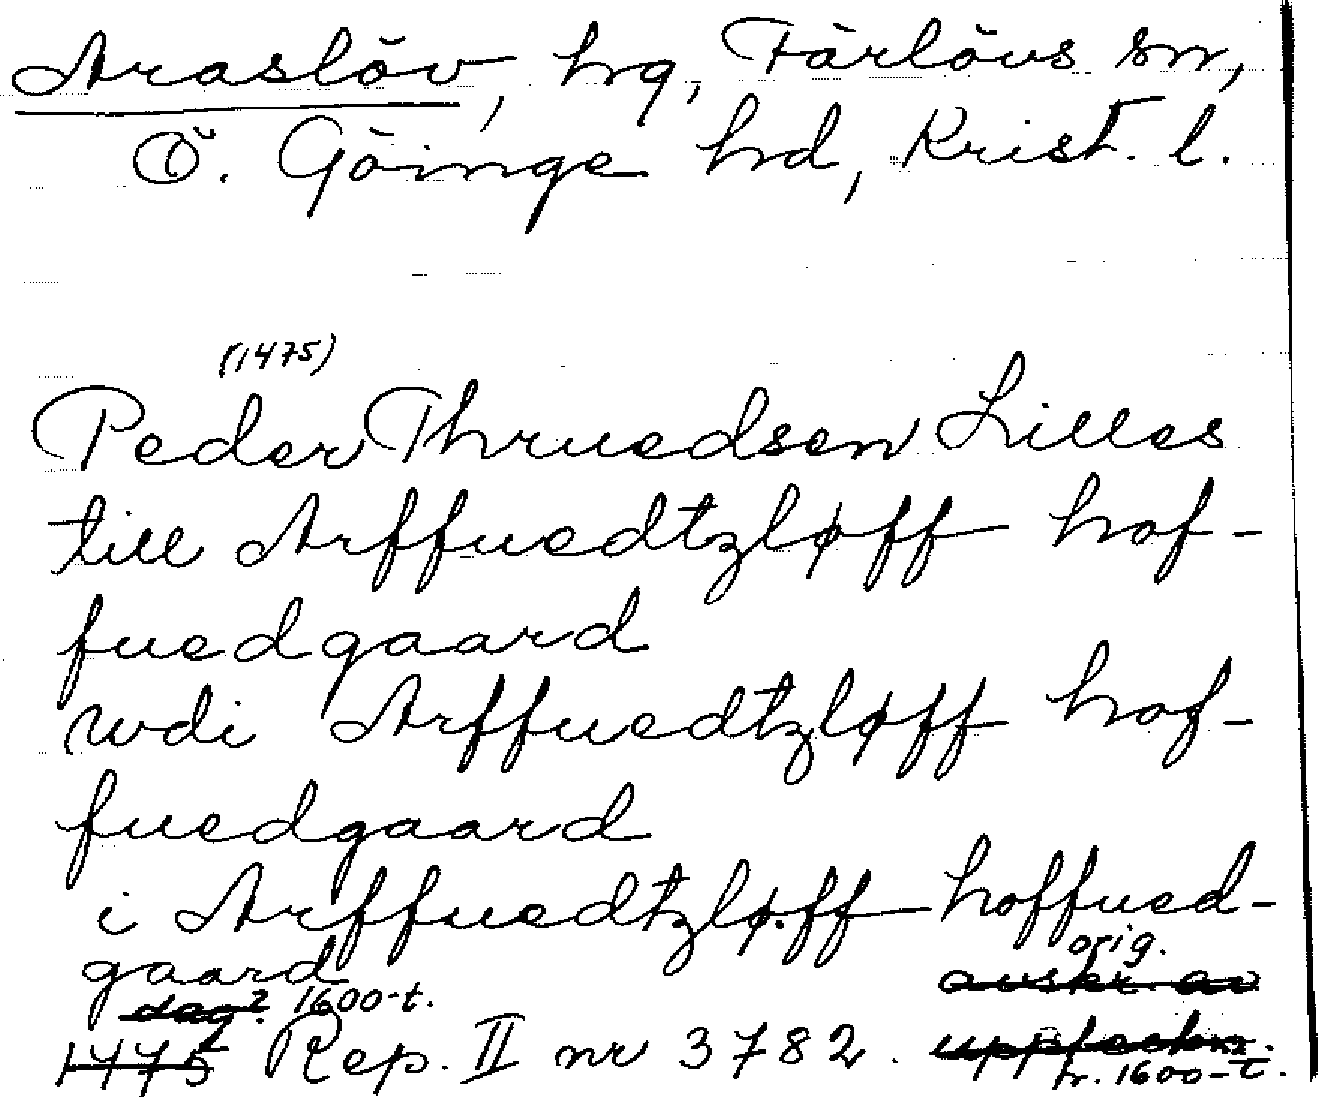 Araslöv, hg, Färlövs sn,
Ö. Göinge hd, Krist. l.
(1475)
Peder Thruedsen Lilles
till Arffuedtzløff hof-
fuedgaard
wdi Arffuedtzløff hof-
fuedgaard
i Arffuedtzløff hoffued-
gaard
orig.
dag? 1600-t. avskr. av
1475 Rep. II nr 3782. uppteckn.
fr. 1600-t.